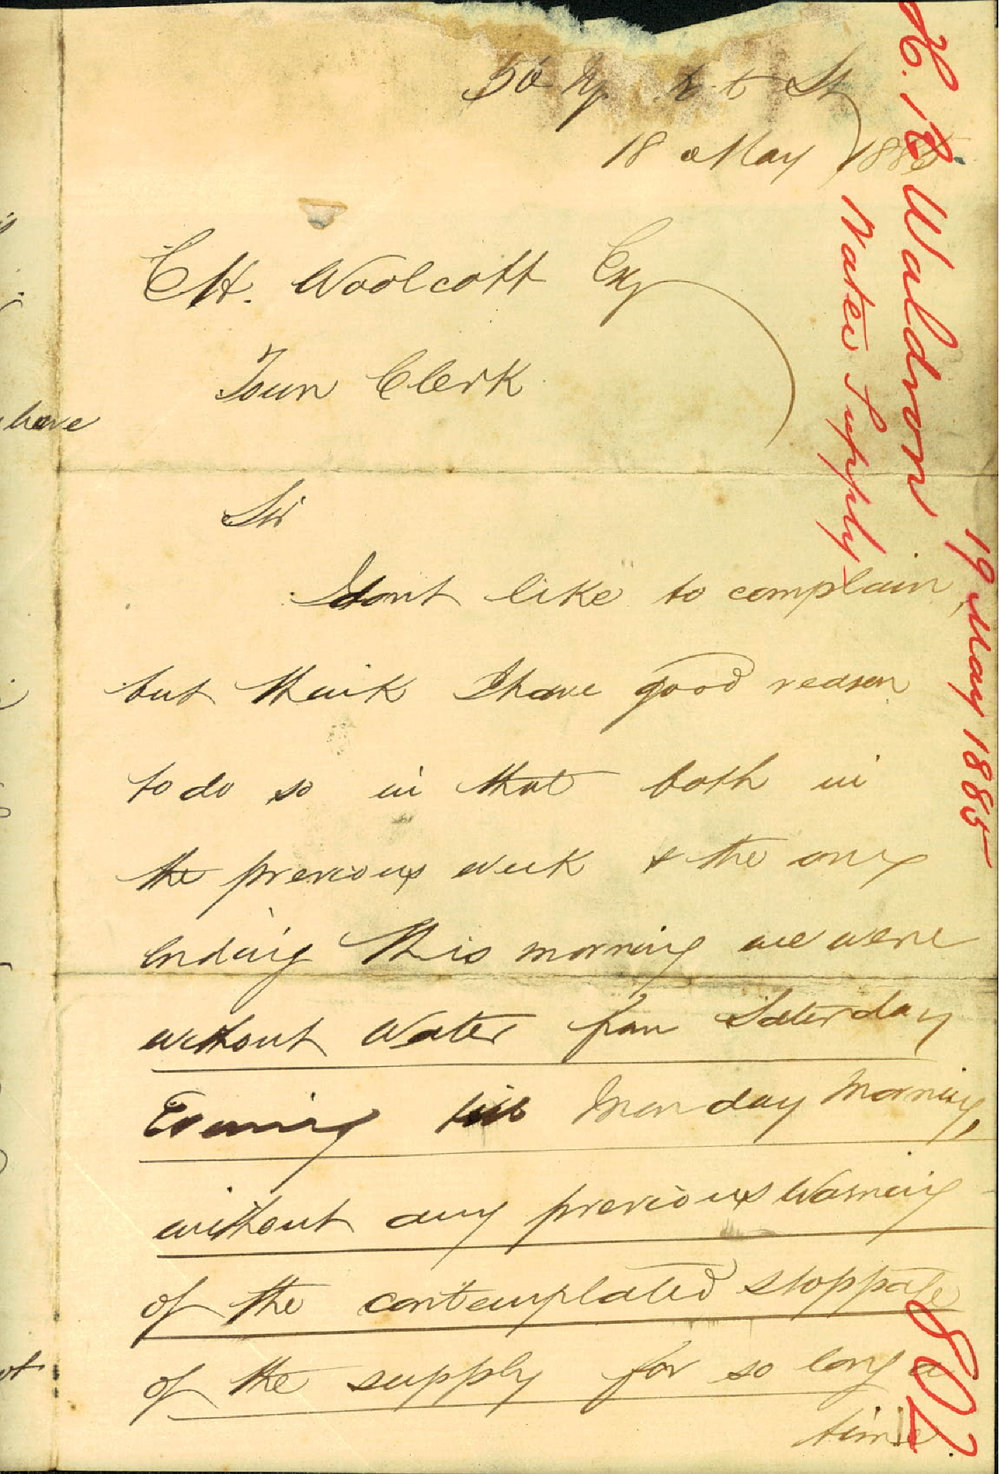 St
18 May 1885
C H. Woolcott Esq
Town Clerk
Sir
I dont like to complain,
but think I have good reason
to do so in that both in
the previous week & the one
ending this morning we were
without Water from Saterday
Evening till Monday Morning,
without any previous Warning
of the contemplated stoppage
of the supply for so long a
time.
H. R Waldron
Water Supply
19 May 1885
802
have